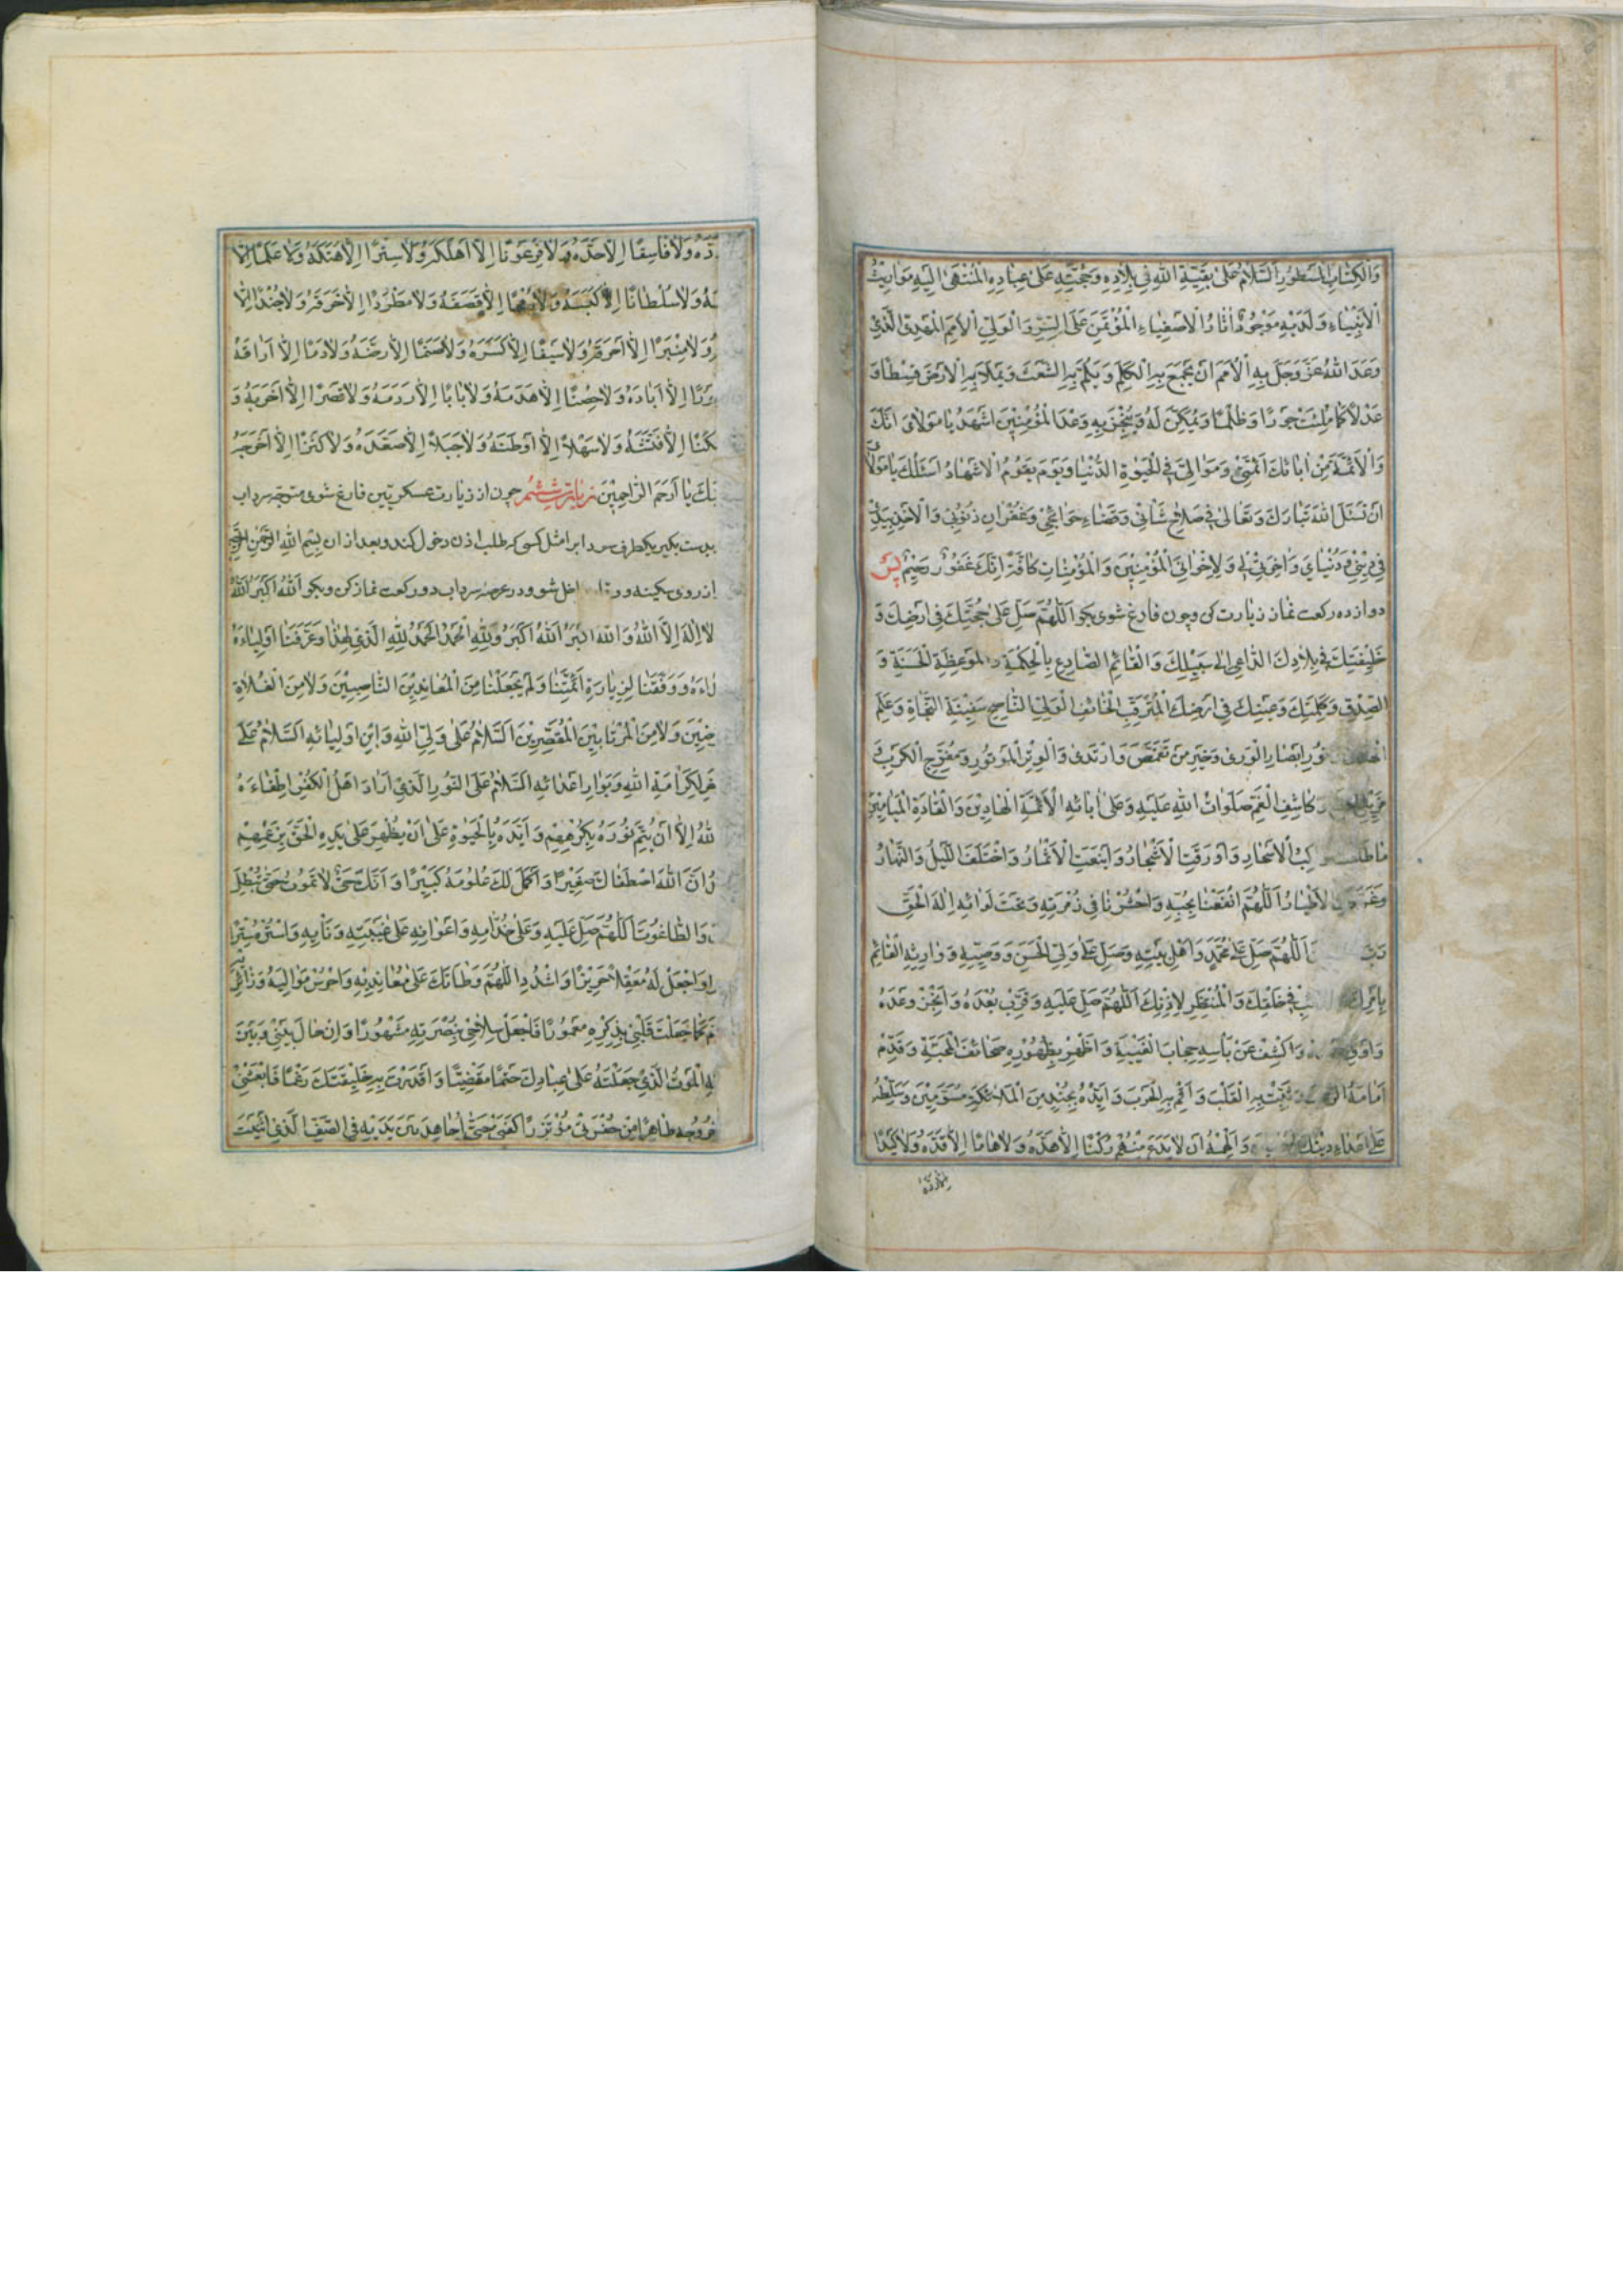 وَالْكِتَابِ الْمَسْطُورِ اَلسَّلَامُ عَلَى بَقِيَّةِ اللهِ فِي بِلَادِهِ وَحُجَّتِهِ عَلَى عِبَادِهِ الْمُنْتَهَى اِلَيْهِ مَوَارِيثُ
الْاَنْبِيَاءِ وَلَدَيْهِ مَوْجُودٌ اٰثَارُ الْاَصْفِيَاءِ الْمُؤْتَمَنِ عَلَى السِّرِّ وَالْوَلِيِّ الْاَمْرِ الْمَهْدِيِّ الَّذِي
وَعَدَ اللهُ عَزَّ وَجَلَّ بِهِ الْاُمَمَ اَنْ يَجْمَعَ بِهِ الْكَلِمَ وَيَلُمَّ بِهِ الشَّعَثَ وَيَمْلَاَ بِهِ الْاَرْضَ قِسْطًا وَ
عَدْلًا كَمَا مُلِئَتْ جَوْرًا وَظُلْمًا وَيُمَكِّنَ لَهُ وَيُنْجِزَ بِهِ وَعْدَ الْمُؤْمِنِينَ اَشْهَدُ يَا مَوْلَايَ اَنَّكَ
وَالْاَئِمَّةَ مِنْ اٰبَائِكَ اَئِمَّتِي وَمَوَالِيَّ فِي الْحَيٰوةِ الدُّنْيَا وَيَوْمَ يَقُومُ الْاَشْهَادُ اَسْئَلُكَ يَا مَوْلَايَ
اَنْ تَسْئَلَ اللهَ تَبَارَكَ وَتَعَالَى فِي صَلَاحِ شَأْنِي وَقَضَاءِ حَوَائِجِي وَغُفْرَانِ ذُنُوبِي وَالْاَخْذِ بِيَدِي
فِي دِينِي وَدُنْيَايَ وَاٰخِرَتِي لِي وَلِاِخْوَانِيَ الْمُؤْمِنِينَ وَالْمُؤْمِنَاتِ كَافَّةً اِنَّكَ غَفُورٌ رَحِيمٌ پس
دوازده ركعت نماز زيارت كن وچون فارغ شوى بگو اَللّٰهُمَّ صَلِّ عَلَى حُجَّتِكَ فِي اَرْضِكَ وَ
خَلِيفَتِكَ فِي بِلَادِكَ الدَّاعِي اِلَى سَبِيلِكَ وَالْقَائِمِ الصَّادِعِ بِالْحِكْمَةِ وَالْمَوْعِظَةِ الْحَسَنَةِ وَ
الصِّدْقِ وَكَلِمَتِكَ وَعَيْنِكَ فِي اَرْضِكَ الْمُتَرَقِّبِ الْخَائِفِ الْوَلِيِّ النَّاصِحِ سَفِينَةِ النَّجَاةِ وَعَلَمِ
نُورِ اَبْصَارِ الْوَرٰى وَخَيْرِ مَنْ تَقَمَّصَ وَارْتَدٰى وَالْوِتْرِ الْمَوْتُورِ وَمُفَرِّجِ الْكَرْبِ وَ
كَاشِفِ الْغَمِّ صَلَوَاتُ اللهِ عَلَيْهِ وَعَلَى اٰبَائِهِ الْاَئِمَّةِ الْهَادِينَ وَالْقَادَةِ الْمَيَامِينِ
كِبُ الْاَسْحَارِ وَاَوْرَقَتِ الْاَشْجَارُ وَاَيْنَعَتِ الْاَثْمَارُ وَاخْتَلَفَ اللَّيْلُ وَالنَّهَارُ
الْاَطْيَارُ اَللّٰهُمَّ انْفَعْنَا بِحُبِّهِ وَاحْشُرْنَا فِي زُمْرَتِهِ وَتَحْتَ لِوَائِهِ اِلٰهَ الْحَقِّ
اَللّٰهُمَّ صَلِّ عَلَى مُحَمَّدٍ وَاَهْلِ بَيْتِهِ وَصَلِّ عَلَى وَلِيِّ الْحَسَنِ وَوَصِيِّهِ وَوَارِثِهِ الْقَائِمِ
بِاَمْرِكَ فِي خَلْقِكَ وَالْمُنْتَظِرِ لِاِذْنِكَ اَللّٰهُمَّ صَلِّ عَلَيْهِ وَقَرِّبْ بُعْدَهُ وَاَنْجِزْ وَعْدَهُ
وَاَوْفِ وَاكْشِفْ عَنْ بَأْسِهِ حِجَابَ الْغَيْبَةِ وَاَظْهِرْ بِظُهُورِهِ صَحَائِفَ الْمِحْنَةِ وَقَدِّمْ
اَمَامَهُ وَثَبِّتْ بِهِ الْقَلْبَ وَاَقِمْ بِهِ الْحَرْبَ وَاَيِّدْهُ بِجُنْدٍ مِنَ الْمَلَائِكَةِ مُسَوِّمِينَ وَسَلِّطْهُ
عَلَى اَعْدَاءِ دِينِكَ وَاَلْهِمْهُ اَنْ لَا يَدَعَ مِنْهُمْ رُكْنًا اِلَّا هَدَّهُ وَلَا هَامًا اِلَّا قَدَّهُ وَلَا كَيْدًا
دَّهُ وَلَا فَاسِقًا اِلَّا حَدَّهُ وَلَا فِرْعَوْنًا اِلَّا اَهْلَكَهُ وَلَا سِتْرًا اِلَّا هَتَكَهُ وَلَا عَلَمًا اِلَّا
سَهُ وَلَا سُلْطَانًا اِلَّا كَبَسَهُ وَلَا رُمْحًا اِلَّا قَصَفَهُ وَلَا مِطْرَدًا اِلَّا خَرَقَهُ وَلَا جُنْدًا اِلَّا
وَلَا مِنْبَرًا اِلَّا اَحْرَقَهُ وَلَا سَيْفًا اِلَّا كَسَرَهُ وَلَا صَنَمًا اِلَّا رَضَّهُ وَلَا دَمًا اِلَّا اَرَاقَهُ
رًا اِلَّا اَبَادَهُ وَلَا حِصْنًا اِلَّا هَدَمَهُ وَلَا بَابًا اِلَّا رَدَمَهُ وَلَا قَصْرًا اِلَّا اَخْرَبَهُ وَ
كَنًا اِلَّا فَتَّشَهُ وَلَا سَهْلًا اِلَّا اَوْطَنَهُ وَلَا جَبَلًا اِلَّا صَعَدَهُ وَلَا كَنْزًا اِلَّا اَخْرَجَهُ
تِكَ يَا اَرْحَمَ الرَّاحِمِينَ زيارت ششم چون از زيارت عسكريين فارغ شوى متوجه سرداب
بدست بگير يكطرف را مثل كسى كه طلب اذن دخول كند وبعد از ان بِسْمِ اللهِ الرَّحْمٰنِ الرَّحِيمِ
از روى سكينه و داخل شو ودر عرصه سرداب دو ركعت نماز كن وبگو اَللهُ اَكْبَرُ اَللهُ
لَا اِلٰهَ اِلَّا اللهُ وَاللهُ اَكْبَرُ اَللهُ اَكْبَرُ وَلِلّٰهِ الْحَمْدُ اَلْحَمْدُ لِلّٰهِ الَّذِي هَدَانَا لِهٰذَا وَعَرَّفَنَا اَوْلِيَاءَهُ
دَاءَهُ وَوَفَّقَنَا لِزِيَارَةِ اَئِمَّتِنَا وَلَمْ يَجْعَلْنَا مِنَ الْمُعَانِدِينَ النَّاصِبِينَ وَلَا مِنَ الْغُلَاةِ
ضِينَ وَلَا مِنَ الْمُرْتَابِينَ الْمُقَصِّرِينَ اَلسَّلَامُ عَلَى وَلِيِّ اللهِ وَابْنِ اَوْلِيَائِهِ اَلسَّلَامُ عَلَى
خَرِ لِكَرَامَةِ اللهِ وَبَوَارِ اَعْدَائِهِ اَلسَّلَامُ عَلَى النُّورِ الَّذِي اَرَادَ اَهْلُ الْكُفْرِ اِطْفَاءَهُ
للهُ اِلَّا اَنْ يُتِمَّ نُورَهُ بِكُرْهِهِمْ وَاَيَّدَهُ بِالْحَيٰوةِ عَلَى اَنْ يُظْهِرَ عَلَى يَدِهِ الْحَقَّ بِرَغْمِهِمْ
اَنَّ اللهَ اصْطَفَاكَ صَغِيرًا وَاَكْمَلَ لَكَ عُلُومَهُ كَبِيرًا وَاَنَّكَ حَيٌّ لَا تَمُوتُ حَتَّى تُبْطِلَ
وَالطَّاغُوتَ اَللّٰهُمَّ صَلِّ عَلَيْهِ وَعَلَى خُدَّامِهِ وَاَعْوَانِهِ عَلَى غَيْبَتِهِ وَنَأْيِهِ وَاسْتُرْهُ سِتْرًا
وَاجْعَلْ لَهُ مَعْقِلًا حَرِيزًا وَاشْدُدِ اللّٰهُمَّ وَطْأَتَكَ عَلَى مُعَانِدِيهِ وَاحْرُسْ مَوَالِيَهُ وَزَائِرِيهِ
مَّ كَمَا جَعَلْتَ قَلْبِي بِذِكْرِهِ مَعْمُورًا فَاجْعَلْ سِلَاحِي بِنُصْرَتِهِ مَشْهُورًا وَاِنْ حَالَ بَيْنِي وَبَيْنَ
ئِهِ الْمَوْتُ الَّذِي جَعَلْتَهُ عَلَى عِبَادِكَ حَتْمًا مَقْضِيًّا وَاَقْدَرْتَ بِهِ خَلِيقَتَكَ رَغْمًا فَابْعَثْنِي
خُرُوجِهِ ظَاهِرًا مِنْ حُفْرَتِي مُؤْتَزِرًا كَفَنِي حَتَّى اُجَاهِدَ بَيْنَ يَدَيْهِ فِي الصَّفِّ الَّذِي اَثْنَيْتَ